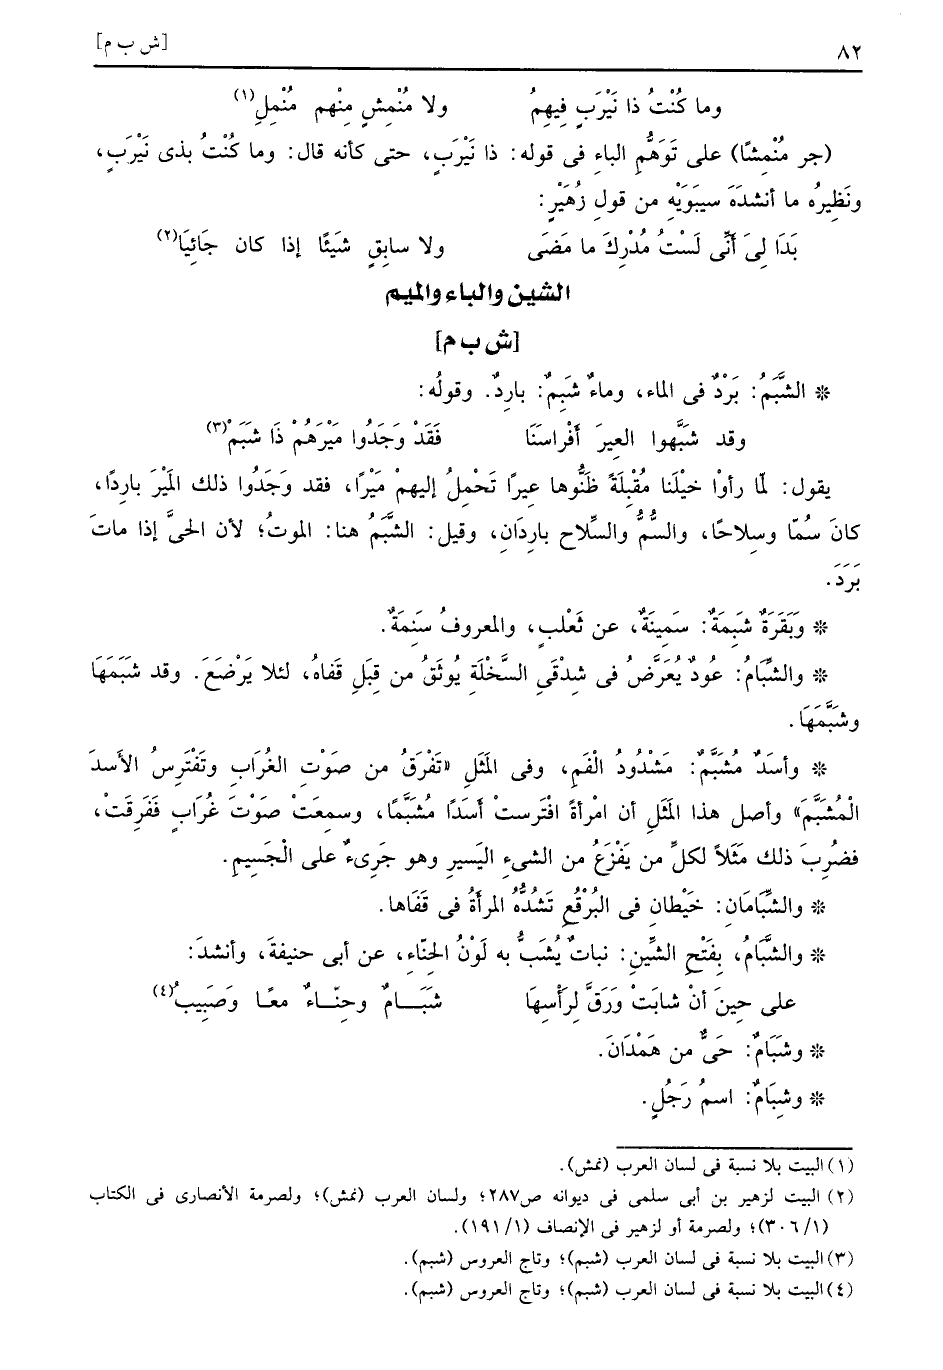 ٨٢ [ش ب م]
وما كُنْتُ ذا نَيْرَبٍ فِيهِمُ ولا مُنْمِشٍ مِنْهم مُنْمِلِ(١)
(جر مُنْمِشًا) على تَوَهُّمِ الباء فى قوله: ذا نَيْرَبٍ، حتى كأنه قال: وما كُنْتُ بذى نَيْرَبٍ،
ونَظِيرُه ما أنشدَه سيبَوَيْهِ من قولِ زُهَيْرٍ:
بَدَا لِىَ أنِّى لَسْتُ مُدْرِكَ ما مَضَى ولا سابِقٍ شَيئًا إذا كان جَائِيَا(٢)
الشين والباء والميم
[ش ب م]
* الشَّبَمُ: بَرْدٌ فى الماء، وماءٌ شَبِمٌ: باردٌ. وقولُه:
وقد شَبَّهوا العِيرَ أفْراسَنَا فَقَدْ وَجَدُوا مَيْرَهُمْ ذَا شَبَمْ(٣)
يقول: لمّا رأوْا خيْلَنا مُقْبِلَةً ظَنُّوها عيرًا تَحْمِلُ إليهمْ مَيْرًا، فقد وَجَدُوا ذلك المَيْرَ بارِدًا،
كانَ سُمّا وسِلاحًا، والسُّمُّ والسِّلاح بارِدَانِ، وقيل: الشَّبَمُ هنا: الموتُ؛ لأن الحىَّ إذا ماتَ
بَرَدَ.
* وبَقَرَةٌ شَبِمَةٌ: سَمِينَةٌ، عن ثَعْلبٍ، والمعروفُ سَنِمَةٌ.
* والشِّبَامُ: عُودٌ يُعَرَّضُ فى شِدْقَىِ السَّخْلَةِ يُوثَقُ من قِبَلِ قَفاهُ، لئلا يَرْضَعَ. وقد شَبَمَهَا
وشَبَّمَهَا.
* وأسَدٌ مُشَبَّمٌ: مَشْدُودُ الْفَمِ، وفى المَثَلِ «تَفْرَقُ من صَوْتِ الغُرَابِ وتَفْتَرِسُ الأسدَ
الْمُشَبَّمَ» وأصل هذا المَثَلِ أن امْرأةً افْتَرستْ أسَدًا مُشَبَّمًا، وسمعَتْ صَوْتَ غُرَابٍ فَفَرِقَتْ،
فضُرِبَ ذلك مَثَلاً لكلِّ من يَفْزَعُ من الشىءِ اليَسيرِ وهو جَرِىءٌ على الْجَسِيمِ.
* والشِّبَامَان: خَيْطانِ فى البُرْقُعِ تَشُدُّه المرأةُ فى قَفَاها.
* والشَّبَامُ، بِفَتْحِ الشِّينِ: نباتٌ يُشَبُّ به لَوْنُ الحِنّاءِ، عن أبى حنيفةَ، وأنشدَ:
على حِينَ أنْ شابَتْ وَرَقَّ لِرَأْسِهَا شَبَـــامٌ وحِنّـــاءٌ معًـا وَصَبِيبُ(٤)
* وشَبَامٌ: حَىٌّ من هَمْدَانَ.
* وشِبَامٌ: اسمُ رَجُلٍ.
(١) البيت بلا نسبة فى لسان العرب (نمش).
(٢) البيت لزهير بن أبى سلمى فى ديوانه ص٢٨٧؛ ولسان العرب (نمش)؛ ولصرمة الأنصارى فى الكتاب
(٣٠٦/١)؛ ولصرمة أو لزهير فى الإنصاف (١٩١/١).
(٣) البيت بلا نسبة فى لسان العرب (شبم)؛ وتاج العروس (شبم).
(٤) البيت بلا نسبة فى لسان العرب (شبم)؛ وتاج العروس (شبم).